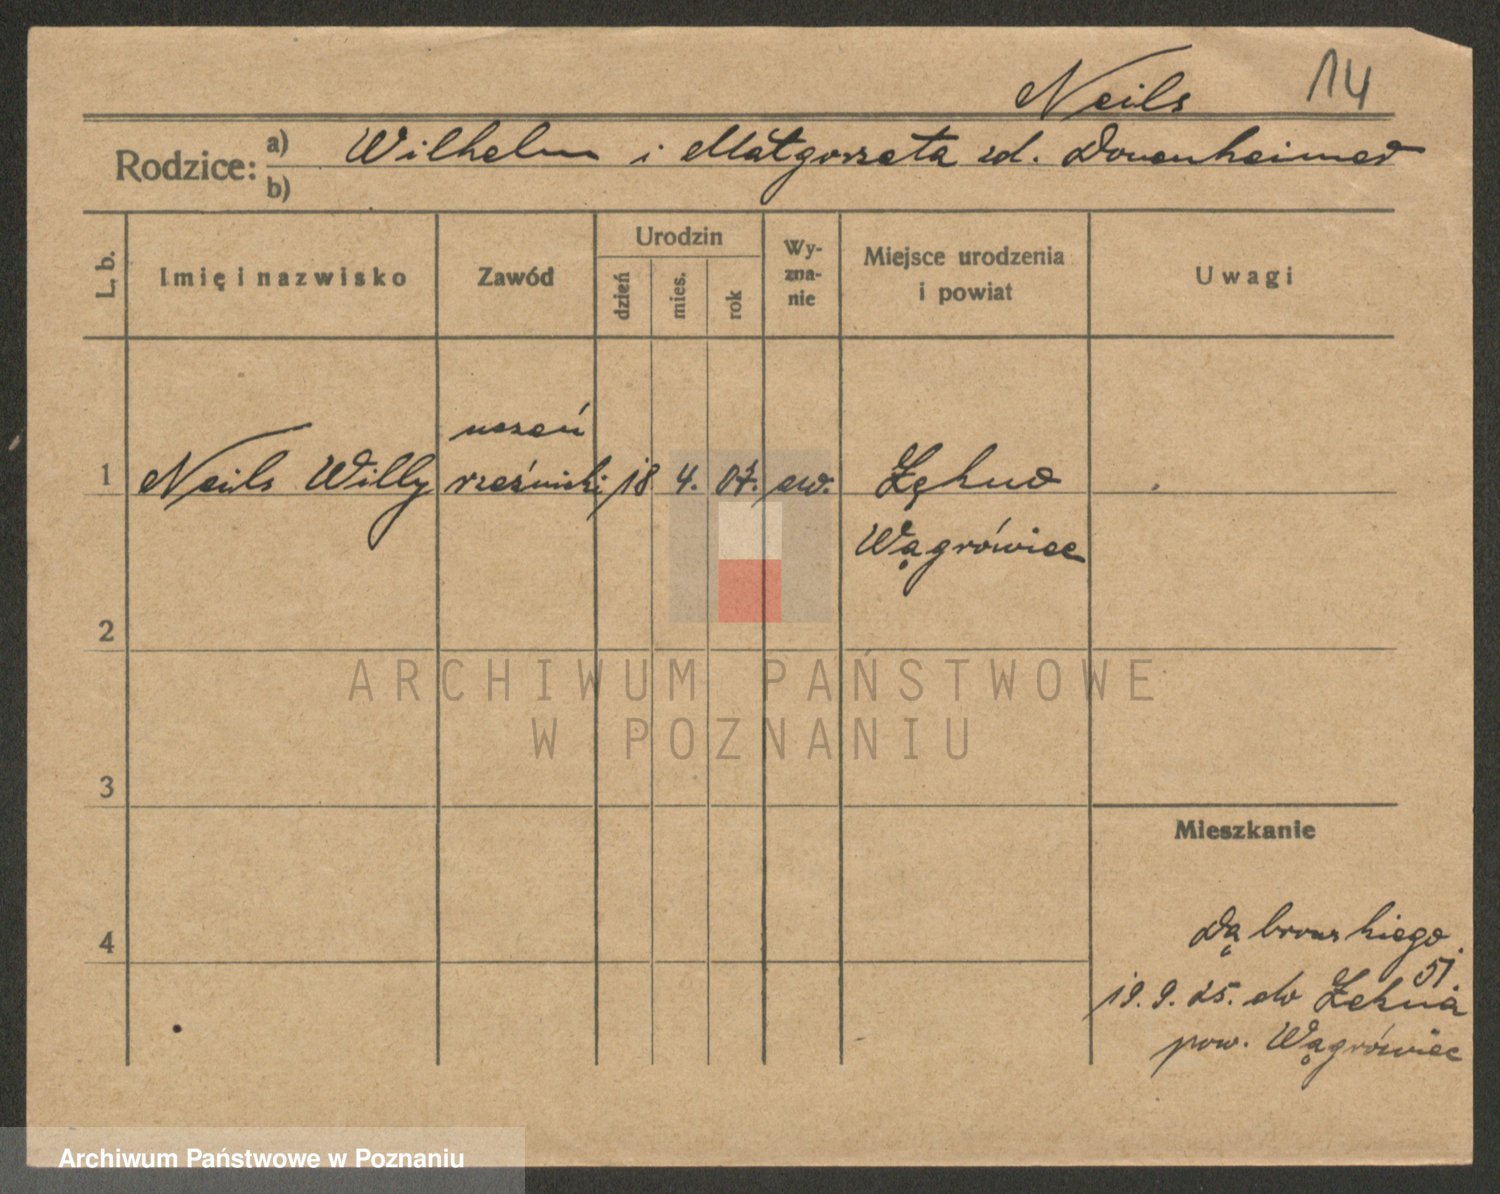 Neils 14
Rodzice: a) Wilhelm i Małgorzata zd. Donenheimer
b)
L. b. Imię i nazwisko Zawód Urodzin dzień mies. rok Wy-zna-nie Miejsce urodzenia i powiat Uwagi
uczeń
1 Neils Willy rzeźnicki 18 4. 07. ew. Żękno
Wągrówiec
2
3
Mieszkanie
4
Dąbrowskiego
51.
19. 9. 25. do Żekna
pow. Wągrówiec
ARCHIWUM PAŃSTWOWE
W POZNANIU
Archiwum Państwowe w Poznaniu